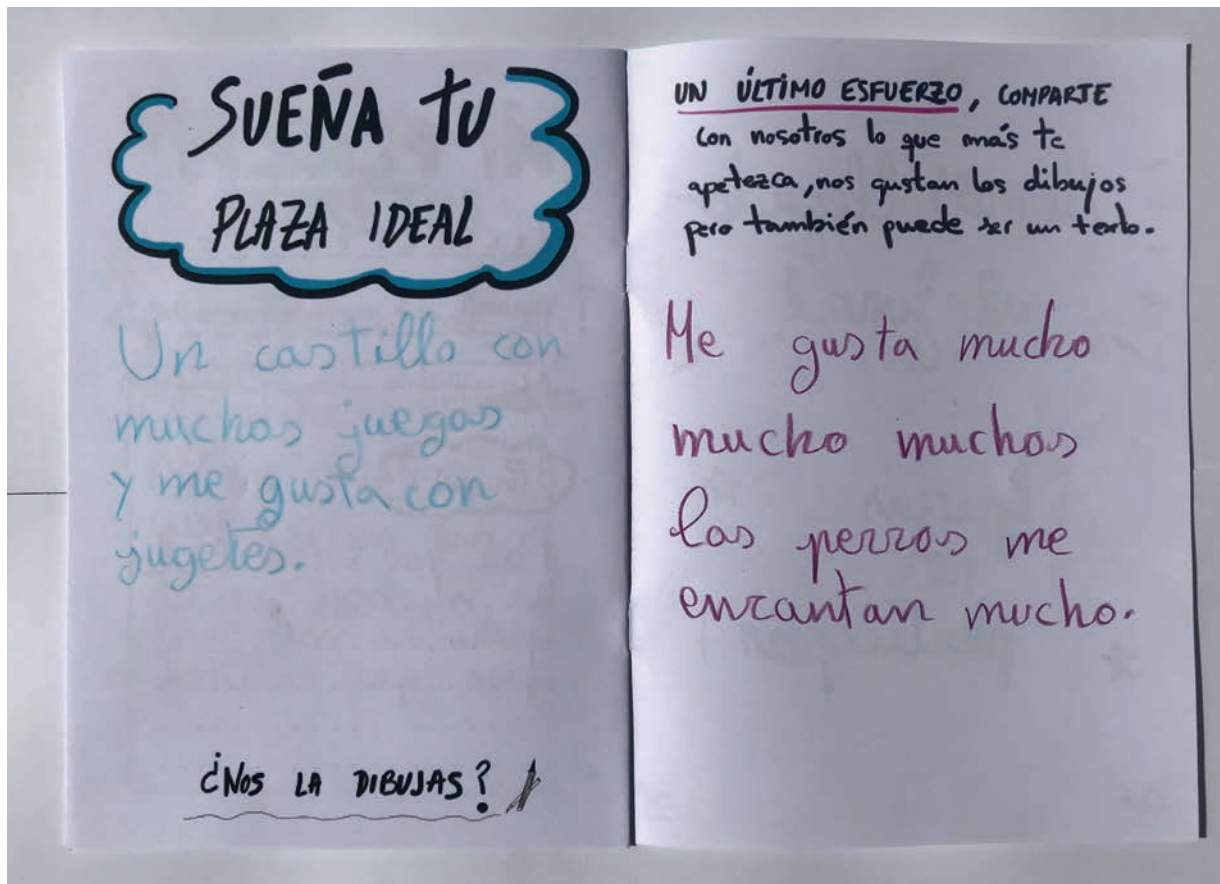 SUEÑA TU
PLAZA IDEAL
Un castillo con
muchos juegos
y me gusta con
jugetes.
¿NOS LA DIBUJAS?
UN ÚLTIMO ESFUERZO, COMPARTE
con nosotros lo que más te
apetezca, nos gustan los dibujos
pero también puede ser un texto.
Me gusta mucho
mucho muchos
los perros me
encantan mucho.